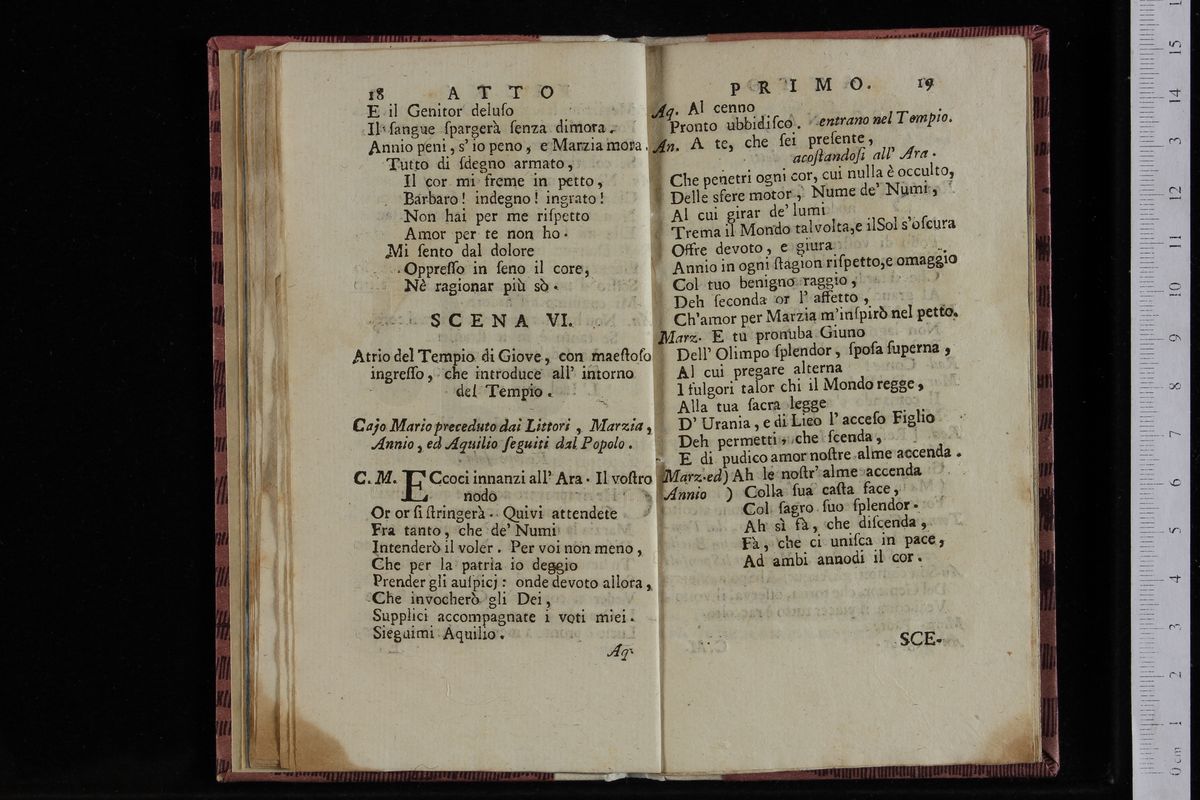 18 ATTO
E il Genitor deluſo
Il ſangue ſpargerà ſenza dimora.
Annio peni, s' io peno, e Marzia mora.
Tutto di ſdegno armato,
Il cor mi freme in petto,
Barbaro! indegno! ingrato!
Non hai per me riſpetto
Amor per te non ho.
Mi ſento dal dolore
Oppreſſo in ſeno il core,
Nè ragionar più sò.
SCENA VI.
Atrio del Tempio di Giove, con maeſtoſo
ingreſſo, che introduce all' intorno
del Tempio.
Cajo Mario preceduto dai Littori, Marzia,
Annio, ed Aquilio ſeguiti dal Popolo.
C. M. ECcoci innanzi all' Ara. Il voſtro
nodo
Or or ſi ſtringerà. Quivi attendete
Fra tanto, che de' Numi
Intenderò il voler. Per voi non meno,
Che per la patria io deggio
Prender gli auſpicj: onde devoto allora,
Che invocherò gli Dei,
Supplici accompagnate i voti miei.
Sieguimi Aquilio.
Aq.
PRIMO. 19
Aq. Al cenno
Pronto ubbidiſco. entrano nel Tempio.
An. A te, che ſei preſente,
acoſtandoſi all' Ara.
Che penetri ogni cor, cui nulla è occulto,
Delle sfere motor, Nume de' Numi,
Al cui girar de' lumi
Trema il Mondo talvolta,e ilSol s'oſcura
Offre devoto, e giura
Annio in ogni ſtagion riſpetto,e omaggio
Col tuo benigno raggio,
Deh ſeconda or l' affetto,
Ch'amor per Marzia m'inſpirò nel petto.
Marz. E tu pronuba Giuno
Dell' Olimpo ſplendor, ſpoſa ſuperna,
Al cui pregare alterna
I fulgori talor chi il Mondo regge,
Alla tua ſacra legge
D' Urania, e di Lieo l' acceſo Figlio
Deh permetti, che ſcenda,
E di pudico amor noſtre alme accenda.
Marz.ed) Ah le noſtr' alme accenda
Annio ) Colla ſua caſta face,
Col ſagro ſuo ſplendor.
Ah sì fà, che diſcenda,
Fà, che ci uniſca in pace,
Ad ambi annodi il cor.
SCE-
15
14
13
12
11
10
9
8
7
6
5
4
3
2
1
0 cm